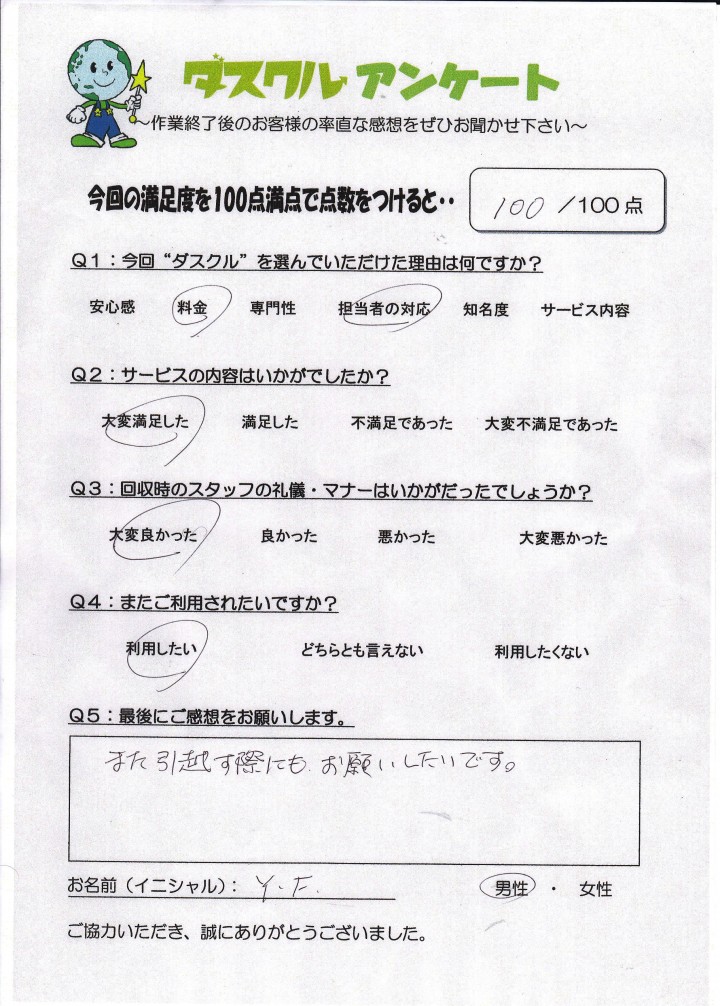 ダスクル アンケート
～作業終了後のお客様の率直な感想をぜひお聞かせ下さい～
今回の満足度を100点満点で点数をつけると‥ 100 /100点
Q1：今回“ダスクル”を選んでいただけた理由は何ですか？
安心感 料金 専門性 担当者の対応 知名度 サービス内容
Q2：サービスの内容はいかがでしたか？
大変満足した 満足した 不満足であった 大変不満足であった
Q3：回収時のスタッフの礼儀・マナーはいかがだったでしょうか？
大変良かった 良かった 悪かった 大変悪かった
Q4：またご利用されたいですか？
利用したい どちらとも言えない 利用したくない
Q5：最後にご感想をお願いします。
また引越す際にも、お願いしたいです。
お名前（イニシャル）： Y.F. 男性 ・ 女性
ご協力いただき、誠にありがとうございました。